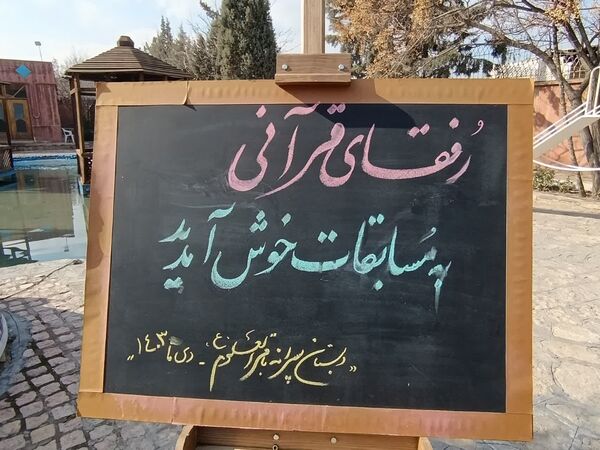 رُفقای قرآنی
به مُسابقات خوش آمدید
«دبستان پسرانه باقرالعلوم (ع) - دی ماه ۱۴۰۳»